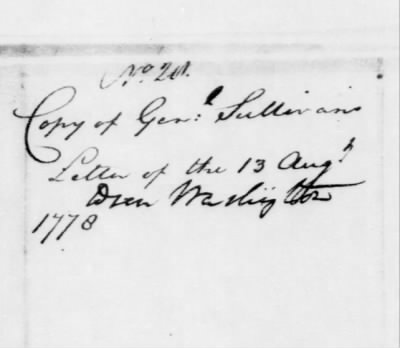 No 20.
Copy of Genl Sullivans
Letter of the 13 Augt
Washington
1778